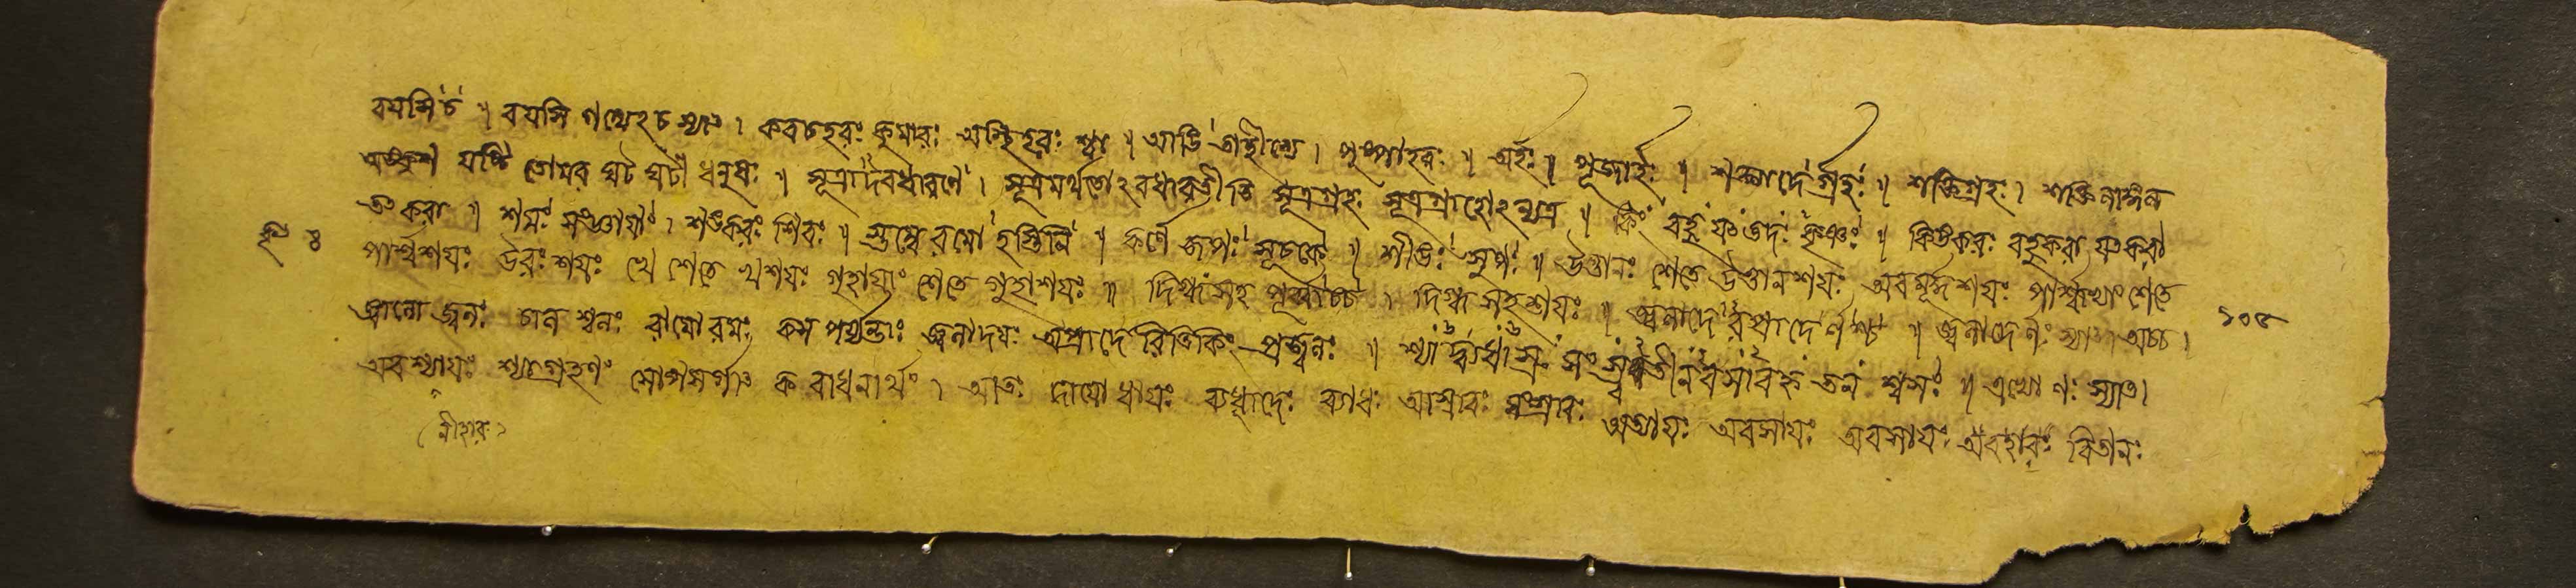 বয়সি চ ॥ বয়সি গম্যেঽচ স্যাৎ । কবচহরঃ কুমারঃ অস্থিহরঃ শ্বা ॥ আঙি তাচ্ছীল্যে । পুষ্পাহরঃ ॥ অর্হঃ ॥ পূজার্হঃ ॥ শক্ত্যাদের্গ্রহঃ ॥ শক্তিগ্রহঃ । শক্তি লাঙ্গল
অঙ্কুশ যষ্টি তোমর ঘট ঘটী ধনুষঃ ॥ সূত্রাদবধারণে । সূত্রমর্থতোঽবধারয়তীতি সূত্রগ্রহঃ সূত্রগ্রাহোঽন্যত্র ॥ কিং বহু যত্তদঃ কৃঞঃ ॥ কিঙ্করঃ বহুকরা যৎকরা
তৎকরা ॥ শমঃ সংজ্ঞায়াং । শঙ্করঃ শিবঃ ॥ স্তম্বেরমো হস্তিনি ॥ কর্ণে জপঃ সূচকে ॥ শীঙঃ সুপঃ ॥ উত্তানঃ শেতে উত্তানশয়ঃ অবমূর্দ্ধশয়ঃ পার্শ্বাভ্যাং শেতে
পার্শ্বশয়ঃ উরঃশয়ঃ খে শেতে খশয়ঃ গুহায়াং শেতে গুহাশয়ঃ ॥ দিগ্ধসহ পূর্ব্বাচ্চ । দিগ্ধসহশয়ঃ ॥ জ্বলাদে র্ণশ্চ ॥ জ্বলাদের্ণঃ স্যাৎ । অচ্চ ।
জ্বালো জ্বলঃ চাল শ্চলঃ রামো রমঃ কস পর্য্যন্তাঃ জ্বলাদয়ঃ অপ্রাদেরিতি কিং প্রজ্বলঃ ॥ শ্বসঃ ॥ এভ্যো ণঃ স্যাৎ ।
অবশ্যায়ঃ শ্যাগ্রহণং সোপসর্গাৎ ক বাধনার্থং । আতঃ দায়ো ধায়ঃ ব্যধাদেঃ ব্যাধঃ আস্রাবঃ সংস্রাবঃ অত্যায়ঃ অবসায়ঃ অবসায়ঃ অবহারঃ
নীহারঃ
১০৫